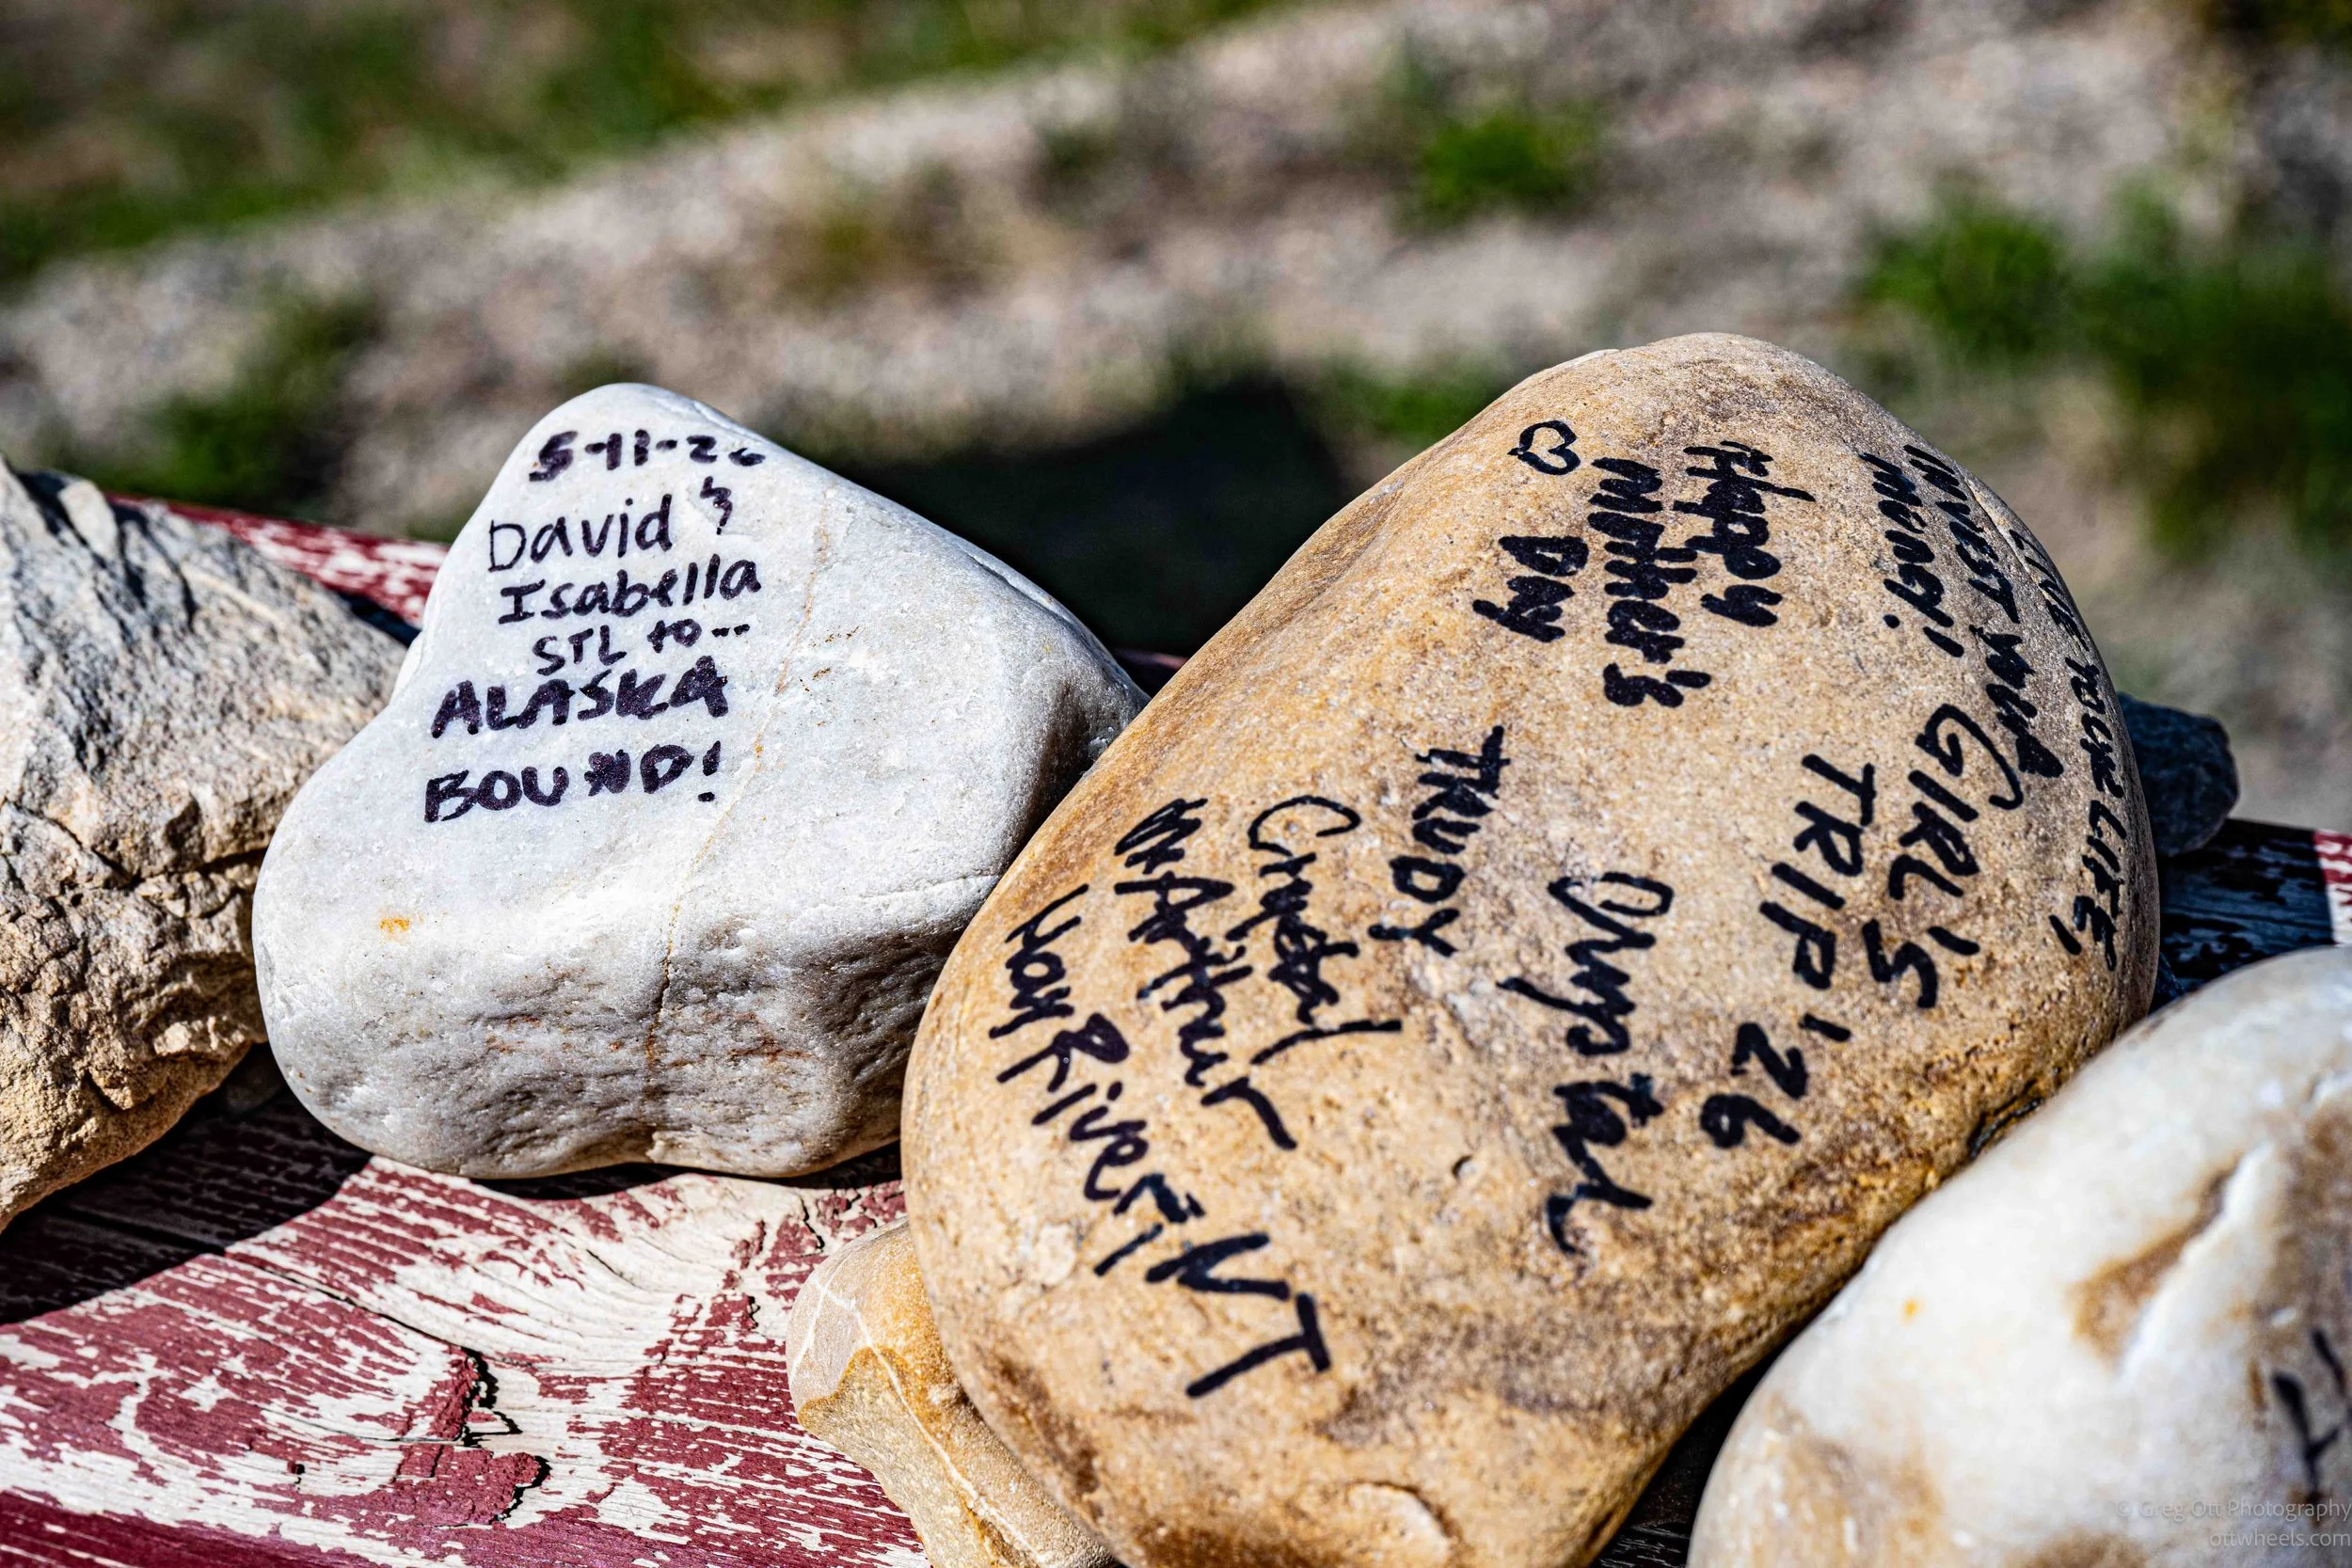 5-11-26
David &
Isabella
STL to--
ALASKA
BOUND!
LIVE YOUR LIFE,
INVEST YOUR
MONEY!
GIRL'S
TRIP '26
Happy
Mother's
Day
TRUDY
Crystal
McArthur
Hay River, NT
© Greg Ott Photography
ottwheels.com